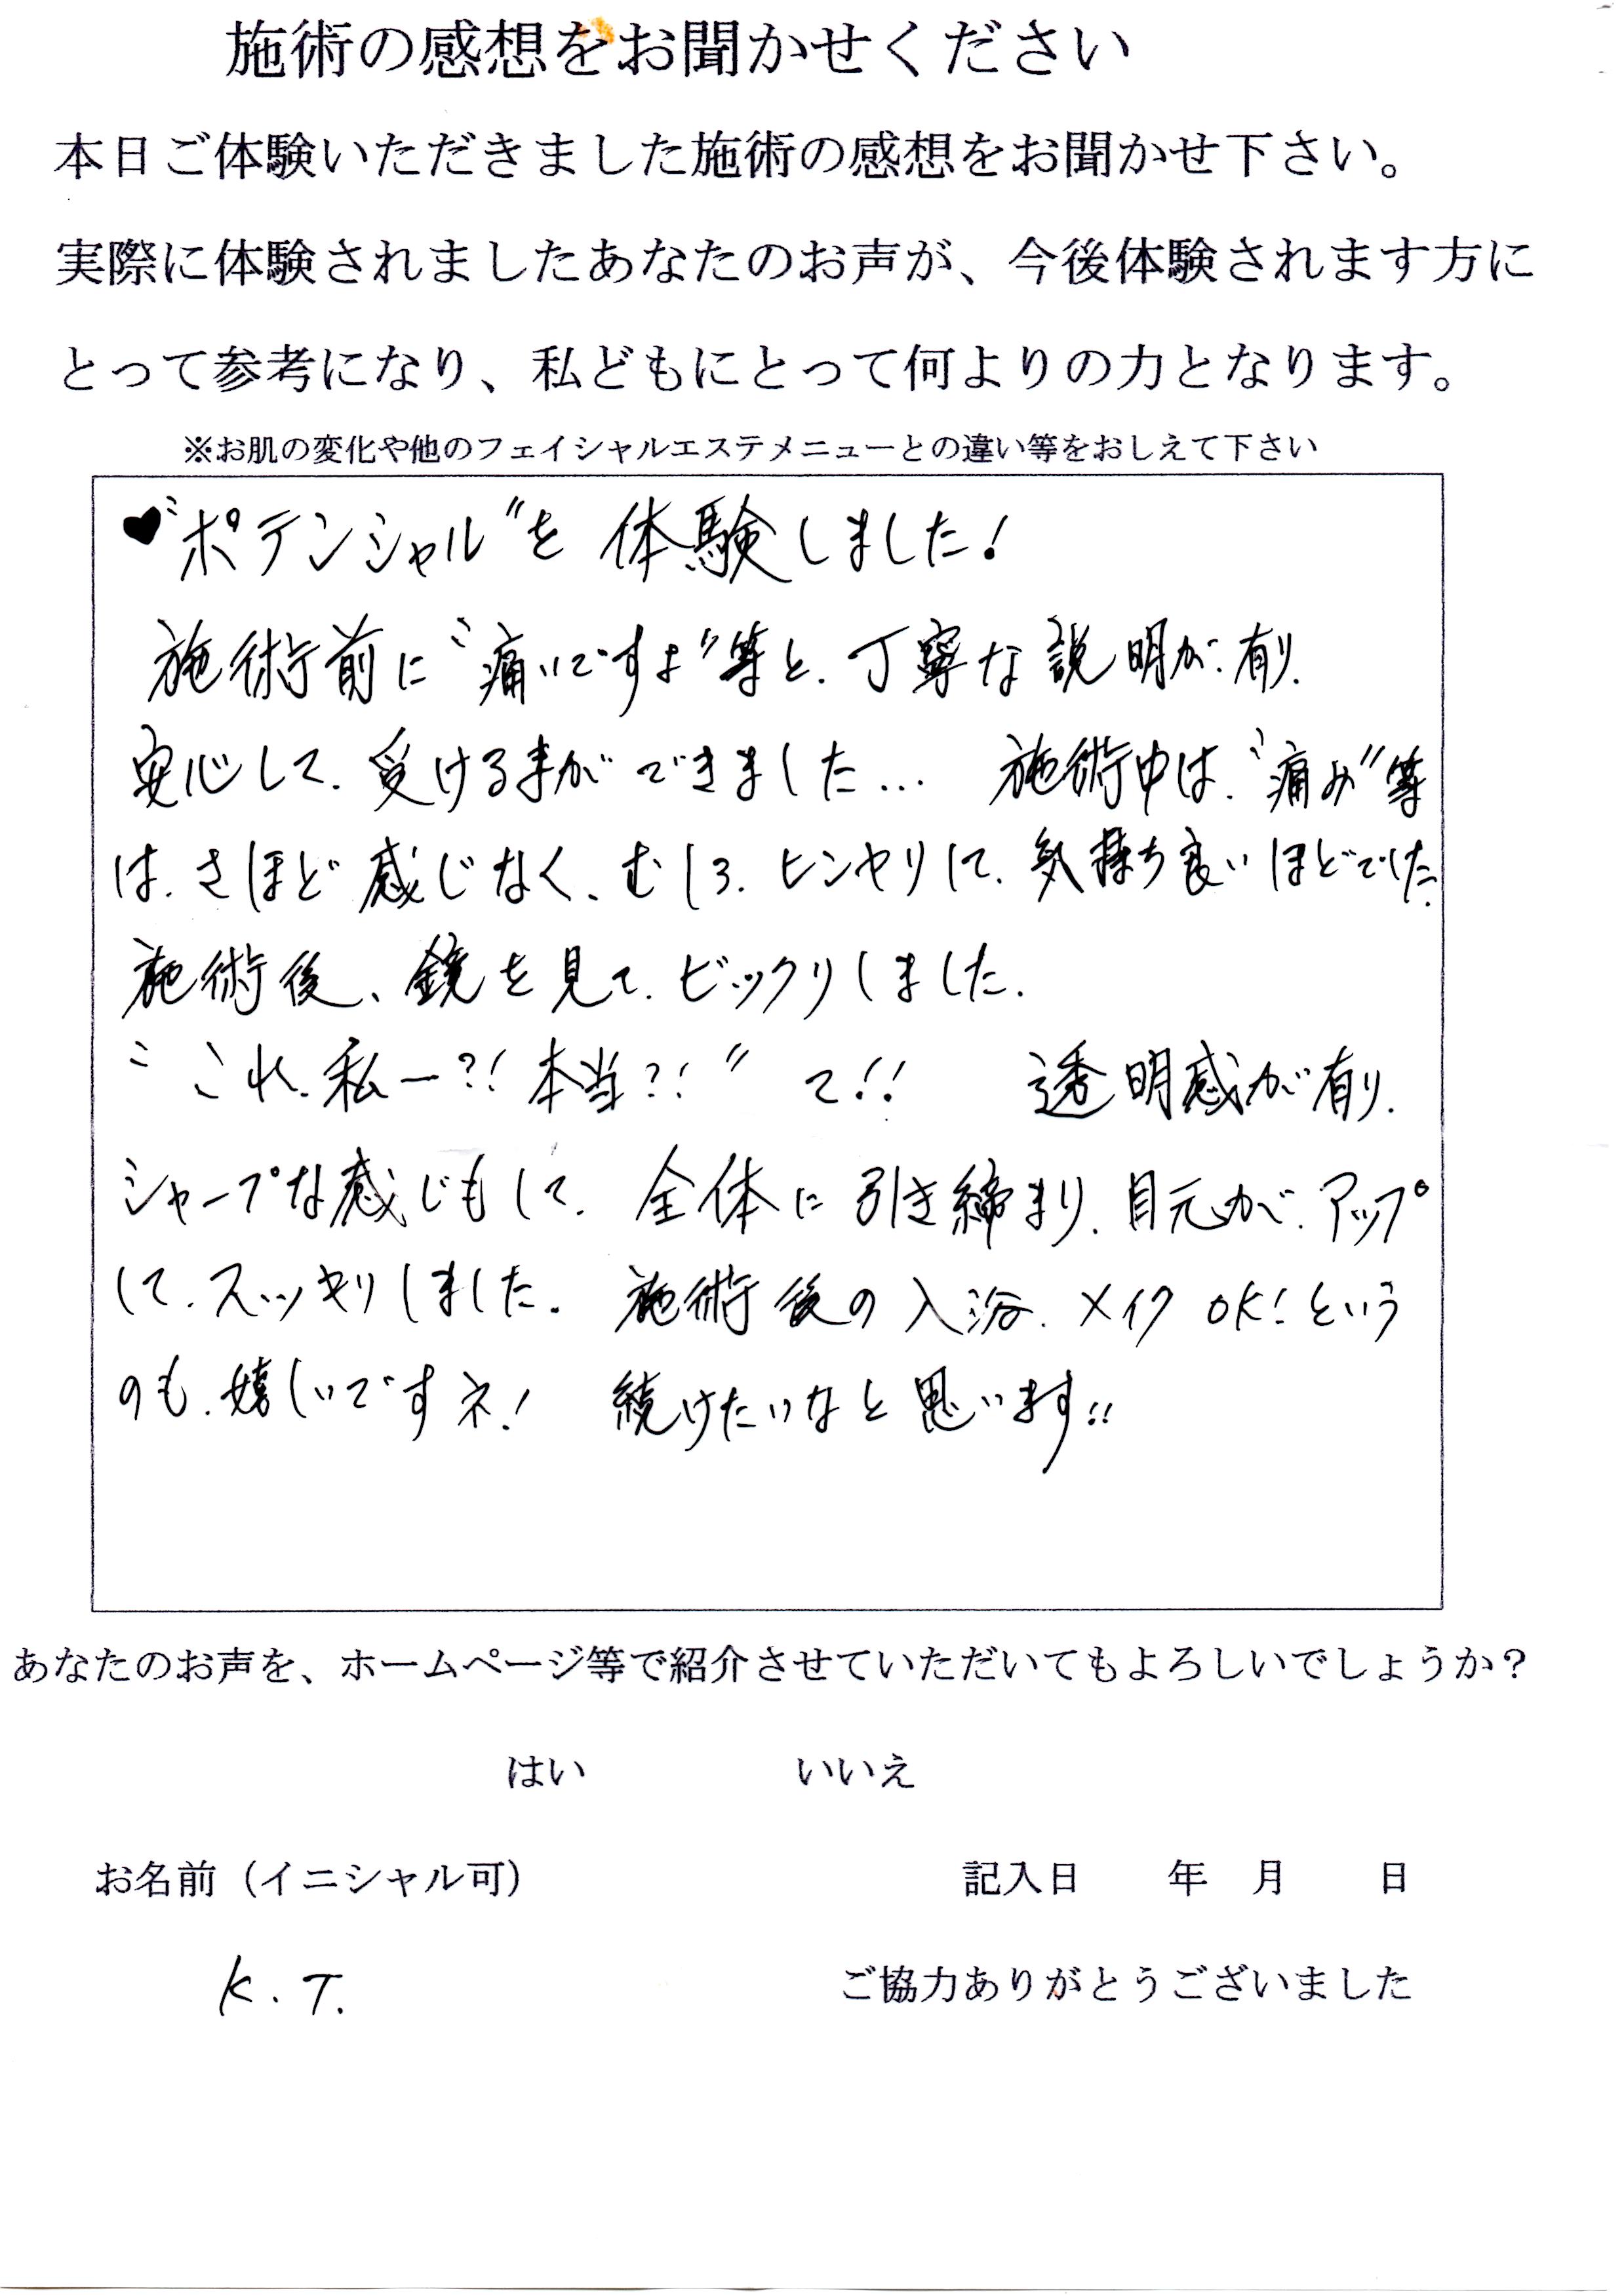 施術の感想をお聞かせください
本日ご体験いただきました施術の感想をお聞かせ下さい。
実際に体験されましたあなたのお声が、今後体験されます方に
とって参考になり、私どもにとって何よりの力となります。
※お肌の変化や他のフェイシャルエステメニューとの違い等をおしえて下さい
♥"ポテンシャル"を体験しました!
施術前に"痛いですよ"等と、丁寧な説明が有り、
安心して、受ける事ができました... 施術中は、"痛み"等
は、さほど感じなく、むしろ、ヒンヤリして、気持ち良いほどでした。
施術後、鏡を見て、ビックリしました。
"これ、私ー?! 本当?!" て!! 透明感が有り、
シャープな感じもして、全体に引き締まり、目元が、アップ
して、スッキリしました。 施術後の入浴、メイクOK!という
のも、嬉しいですネ! 続けたいなと思います!!
あなたのお声を、ホームページ等で紹介させていただいてもよろしいでしょうか?
はい いいえ
お名前(イニシャル可) 記入日 年 月 日
K.T. ご協力ありがとうございました